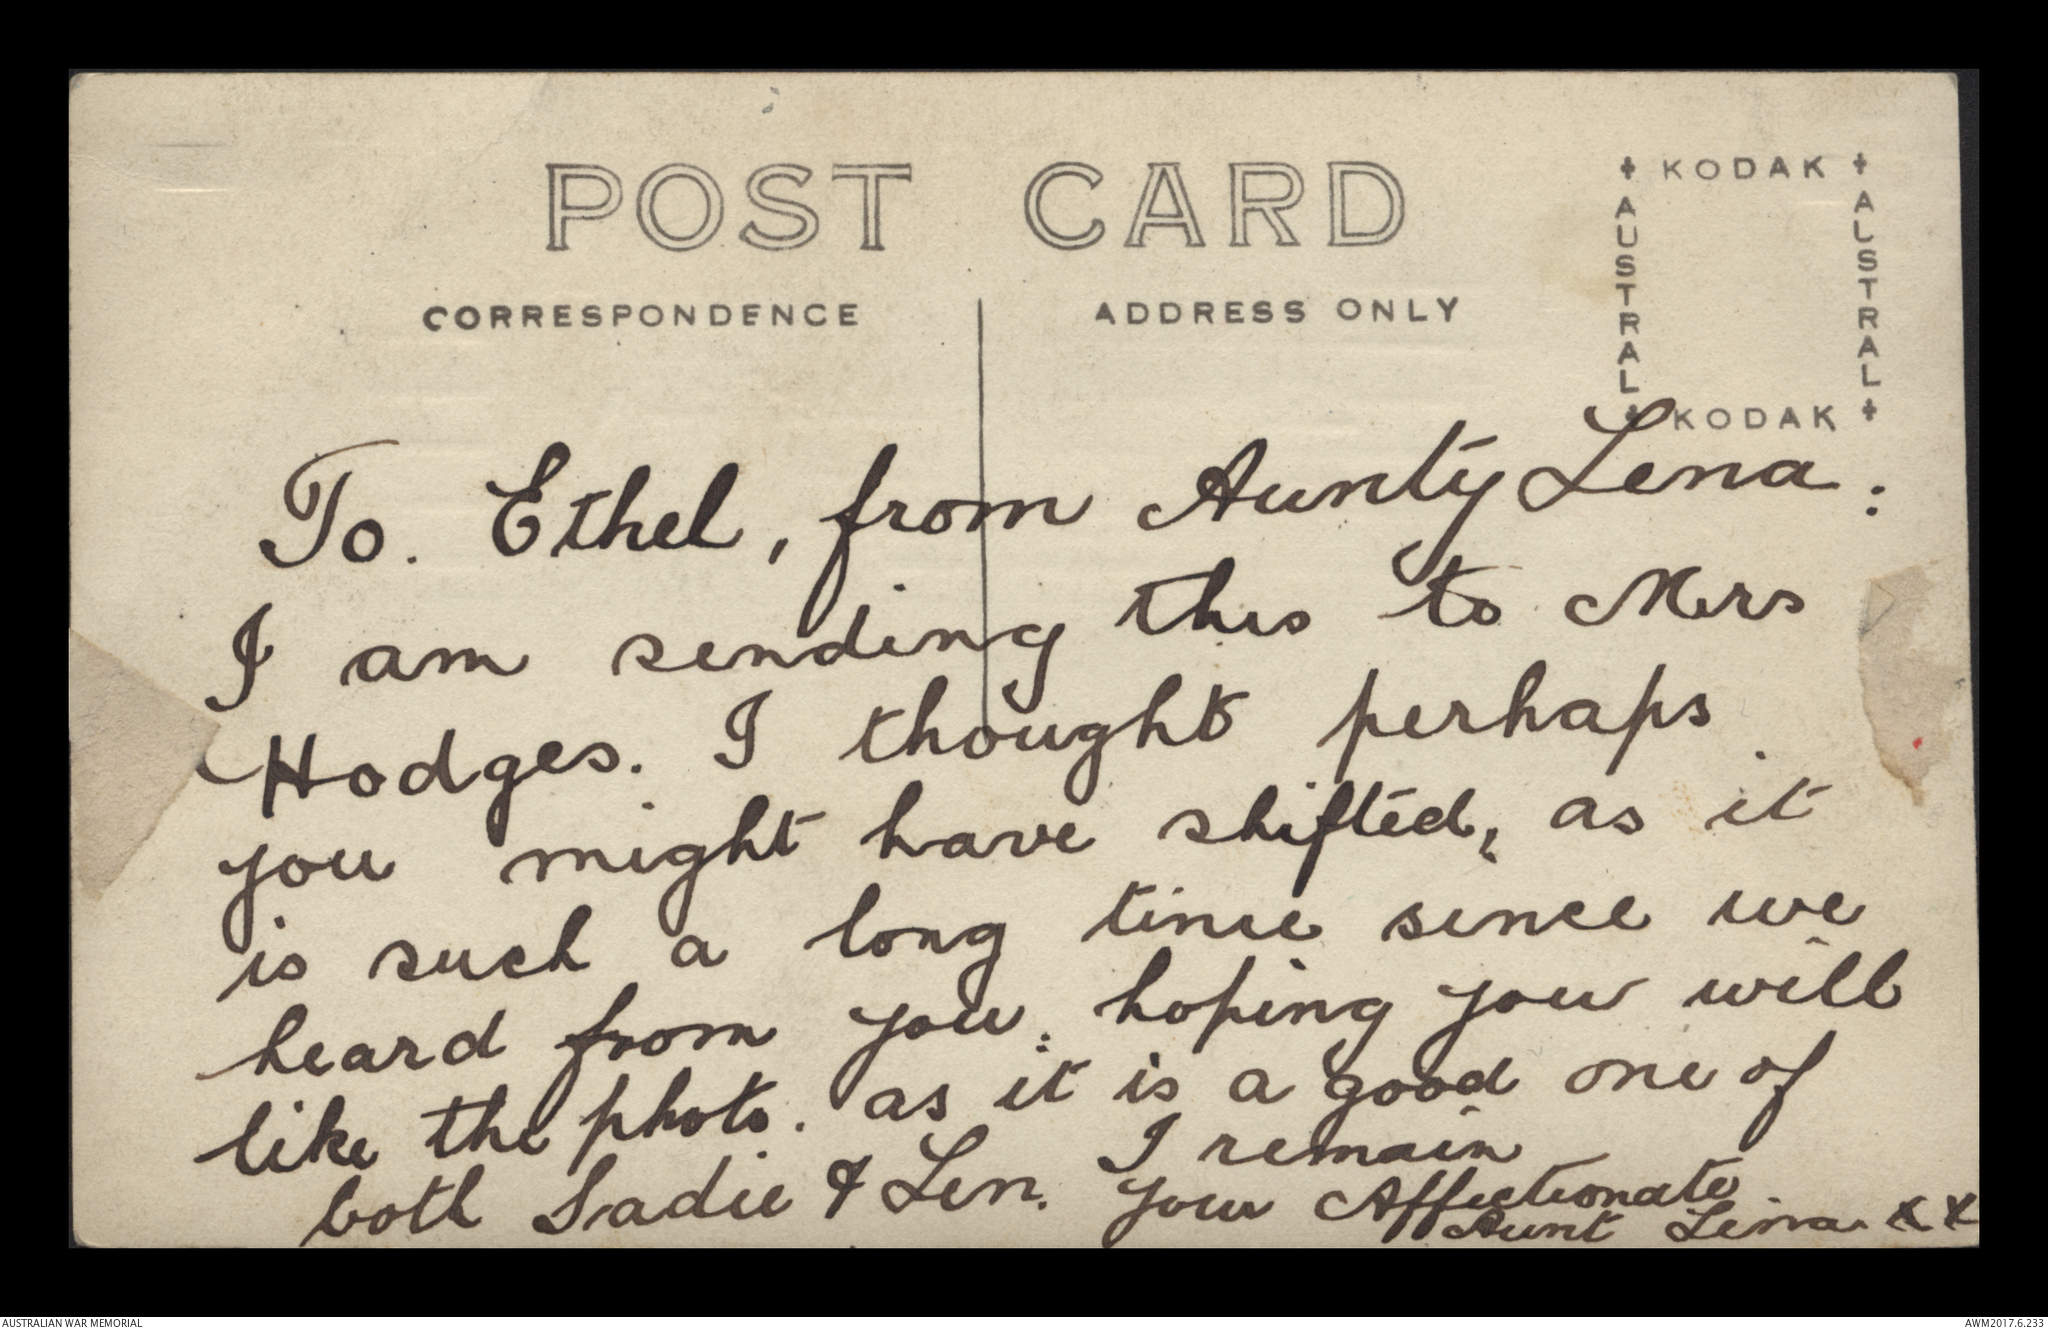 POST CARD
CORRESPONDENCE
ADDRESS ONLY
KODAK
AUSTRAL
ALSTRAL
KODAK
To. Ethel, from Aunty Lena :
I am sending this to Mrs
Hodges. I thought perhaps
you might have shifted, as it
is such a long time since we
heard from you: hoping you will
like the photo. as it is a good one of
both Sadie & Len. I remain
your Affectionate
Aunt Lena x x
AUSTRALIAN WAR MEMORIAL
AWM2017.6.233